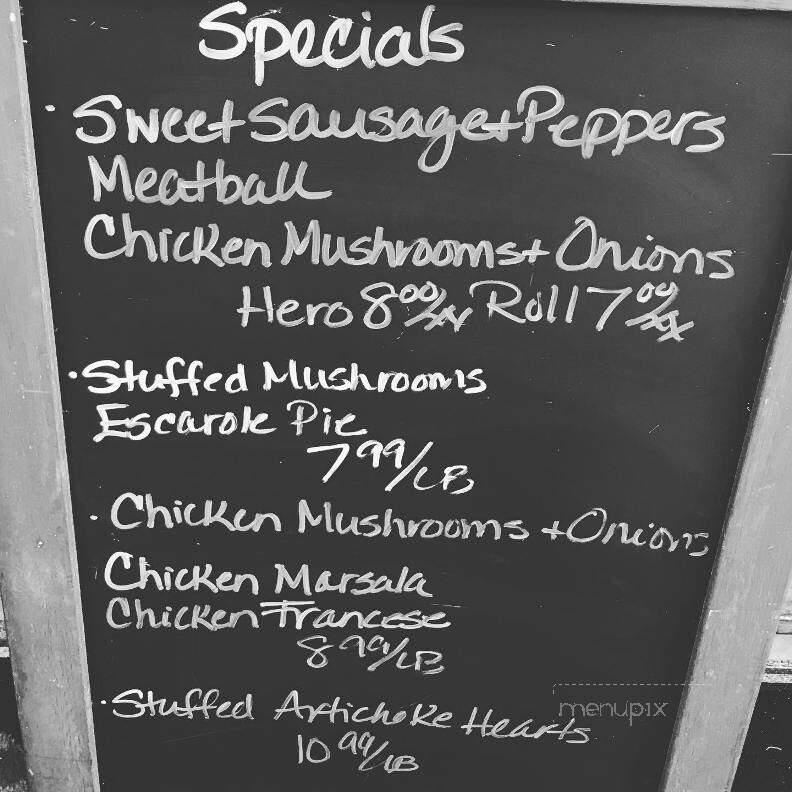 Specials
· Sweet Sausage + Peppers
Meatball
Chicken Mushrooms + Onions
Hero 8.00/xx Roll 7.00/xx
· Stuffed Mushrooms
Escarole Pie
7 99/LB
· Chicken Mushrooms + Onions
Chicken Marsala
Chicken Francese
8 99/LB
· Stuffed Artichoke Hearts
menupix
10 99/LB